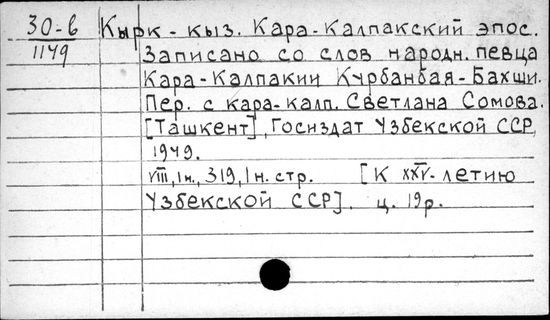 30-в
1149
Кырк-кыз. Кара-Калпакский эпос.
Записано со слов народн. певца
Кара-Калпакии Курбанбая-Бахши.
Пер. с кара-калп. Светлана Сомова.
[Ташкент], Госиздат Узбекской ССР,
1949.
VIII, 1н., 319, 1н. стр. [К XXV-летию
Узбекской ССР]. ц. 19р.